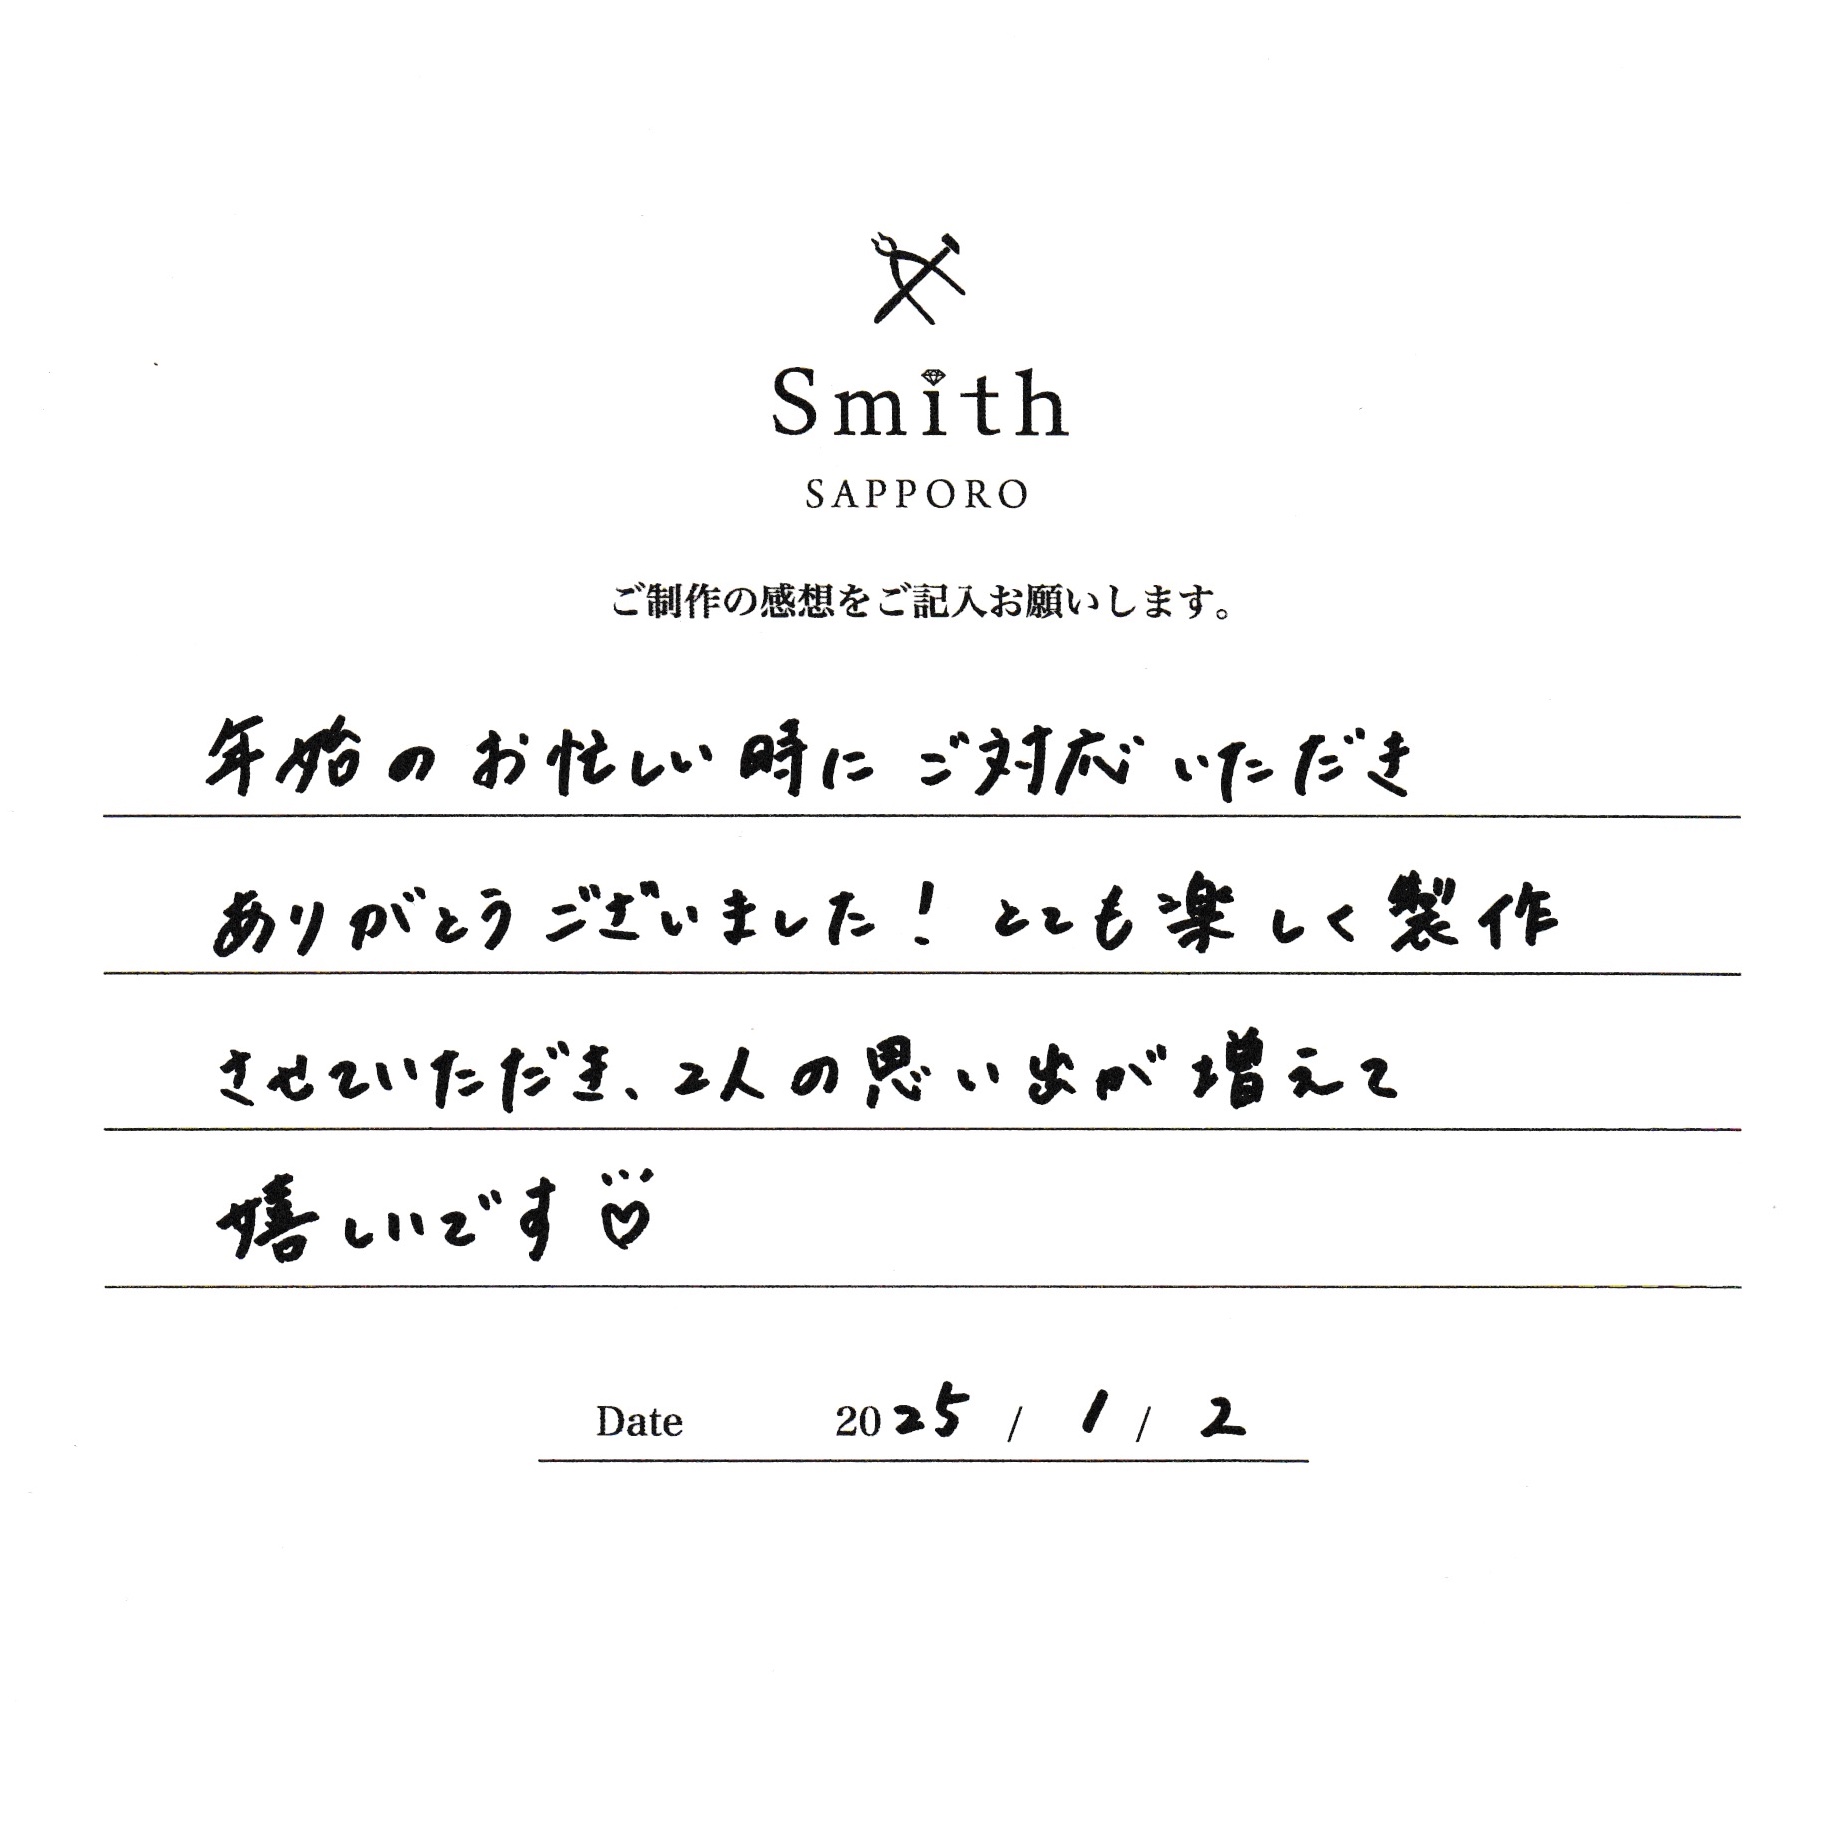 Smith
SAPPORO
ご制作の感想をご記入お願いします。
年始のお忙しい時にご対応いただき
ありがとうございました！とても楽しく製作
させていただき、2人の思い出が増えて
嬉しいです♡
Date 2025 / 1 / 2